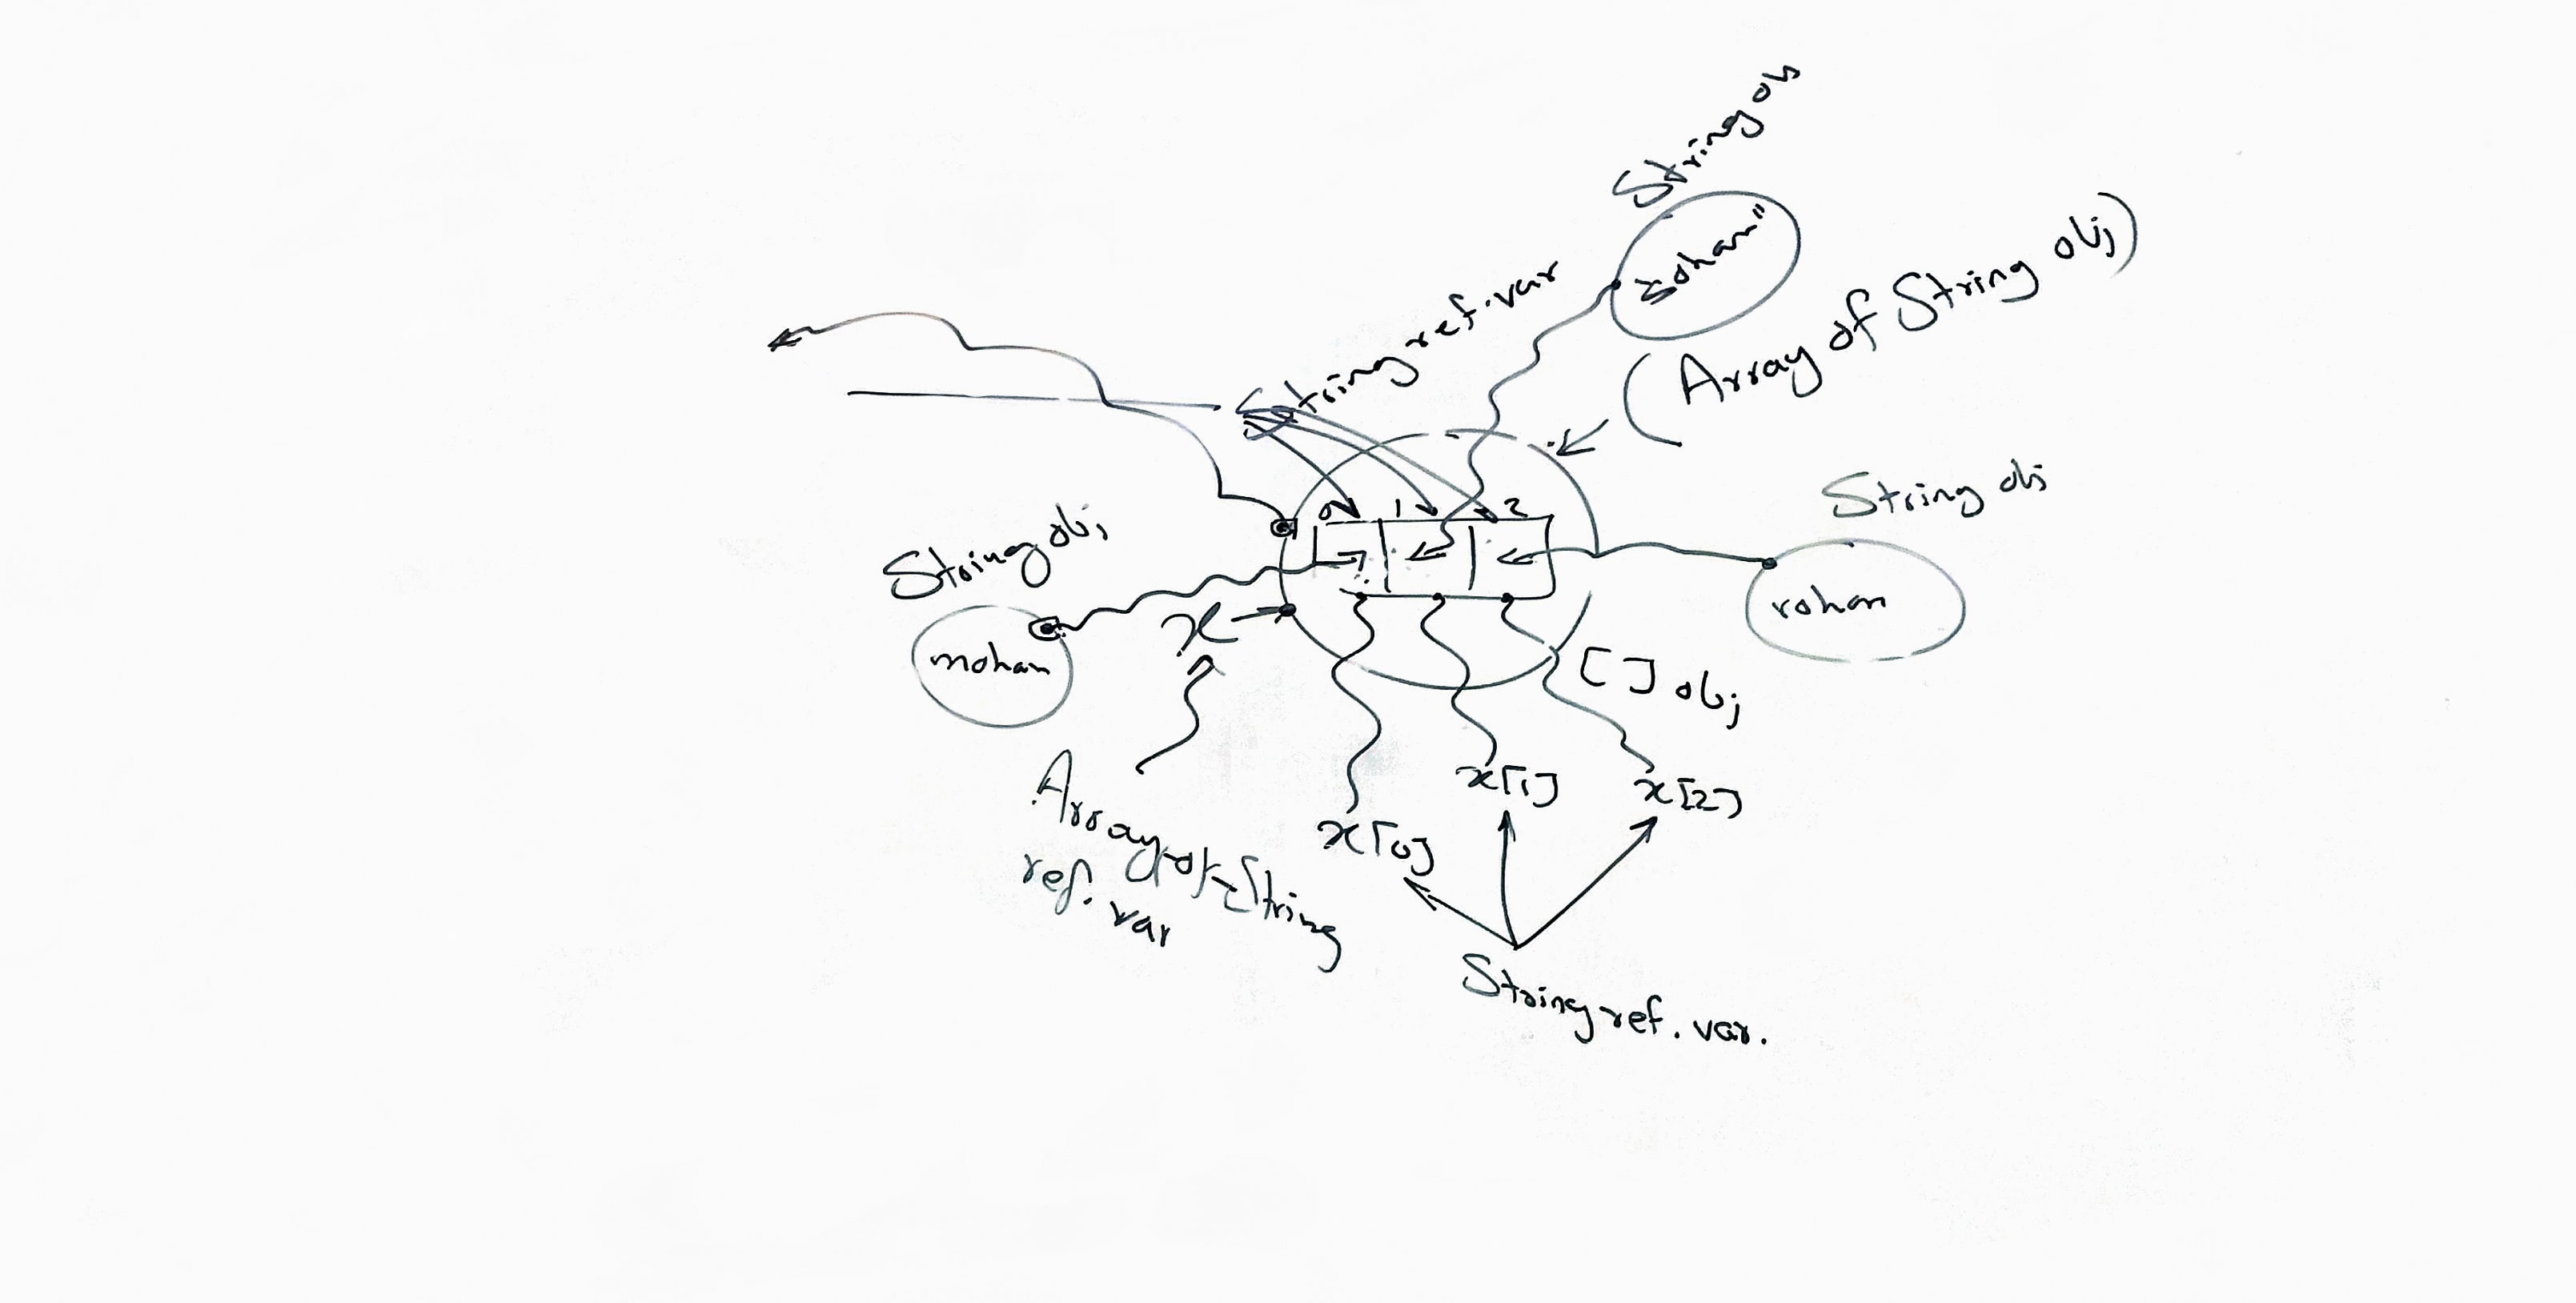 String ob
"sohan"
(Array of String obj)
String ref.var
String obj
rohan
0 1 2
String obj
mohan
x
[ ] obj
Array of String
ref. var
x[0]
x[1]
x[2]
String ref. var.